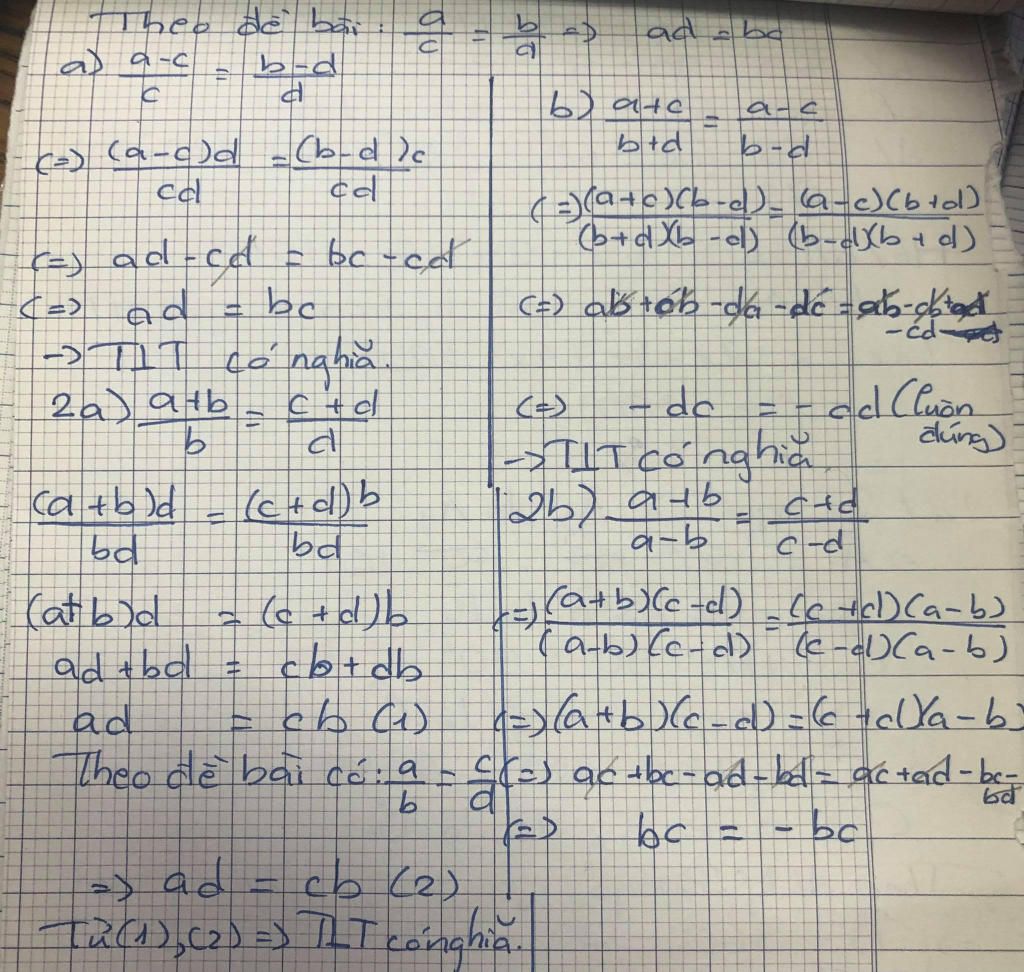 Theo đề bài: a/c = b/d => ad = bc
a) (a-c)/c = (b-d)/d
(=) ((a-c)d)/(cd) = ((b-d)c)/(cd)
(=) ad - cd = bc - cd
(=) ad = bc
-> TLT có nghĩa.
2a) (a+b)/b = (c+d)/d
((a+b)d)/(bd) = ((c+d)b)/(bd)
(a+b)d = (c+d)b
ad + bd = cb + db
ad = cb (1)
Theo đề bài có: a/b = c/d
=> ad = cb (2)
Từ (1), (2) => TLT có nghĩa.
b) (a+c)/(b+d) = (a-c)/(b-d)
(=) ((a+c)(b-d))/((b+d)(b-d)) = ((a-c)(b+d))/((b-d)(b+d))
(=) ab + cb - da - dc = ab - cb + ad
- cd
(=) - dc = - cd (luôn
đúng)
-> TLT có nghĩa
2b) (a+b)/(a-b) = (c+d)/(c-d)
(=) ((a+b)(c-d))/((a-b)(c-d)) = ((c+d)(a-b))/((c-d)(a-b))
(=) (a+b)(c-d) = (c+d)(a-b)
(=) ac + bc - ad - bd = ac + ad - bc -
bd
(=) bc = - bc